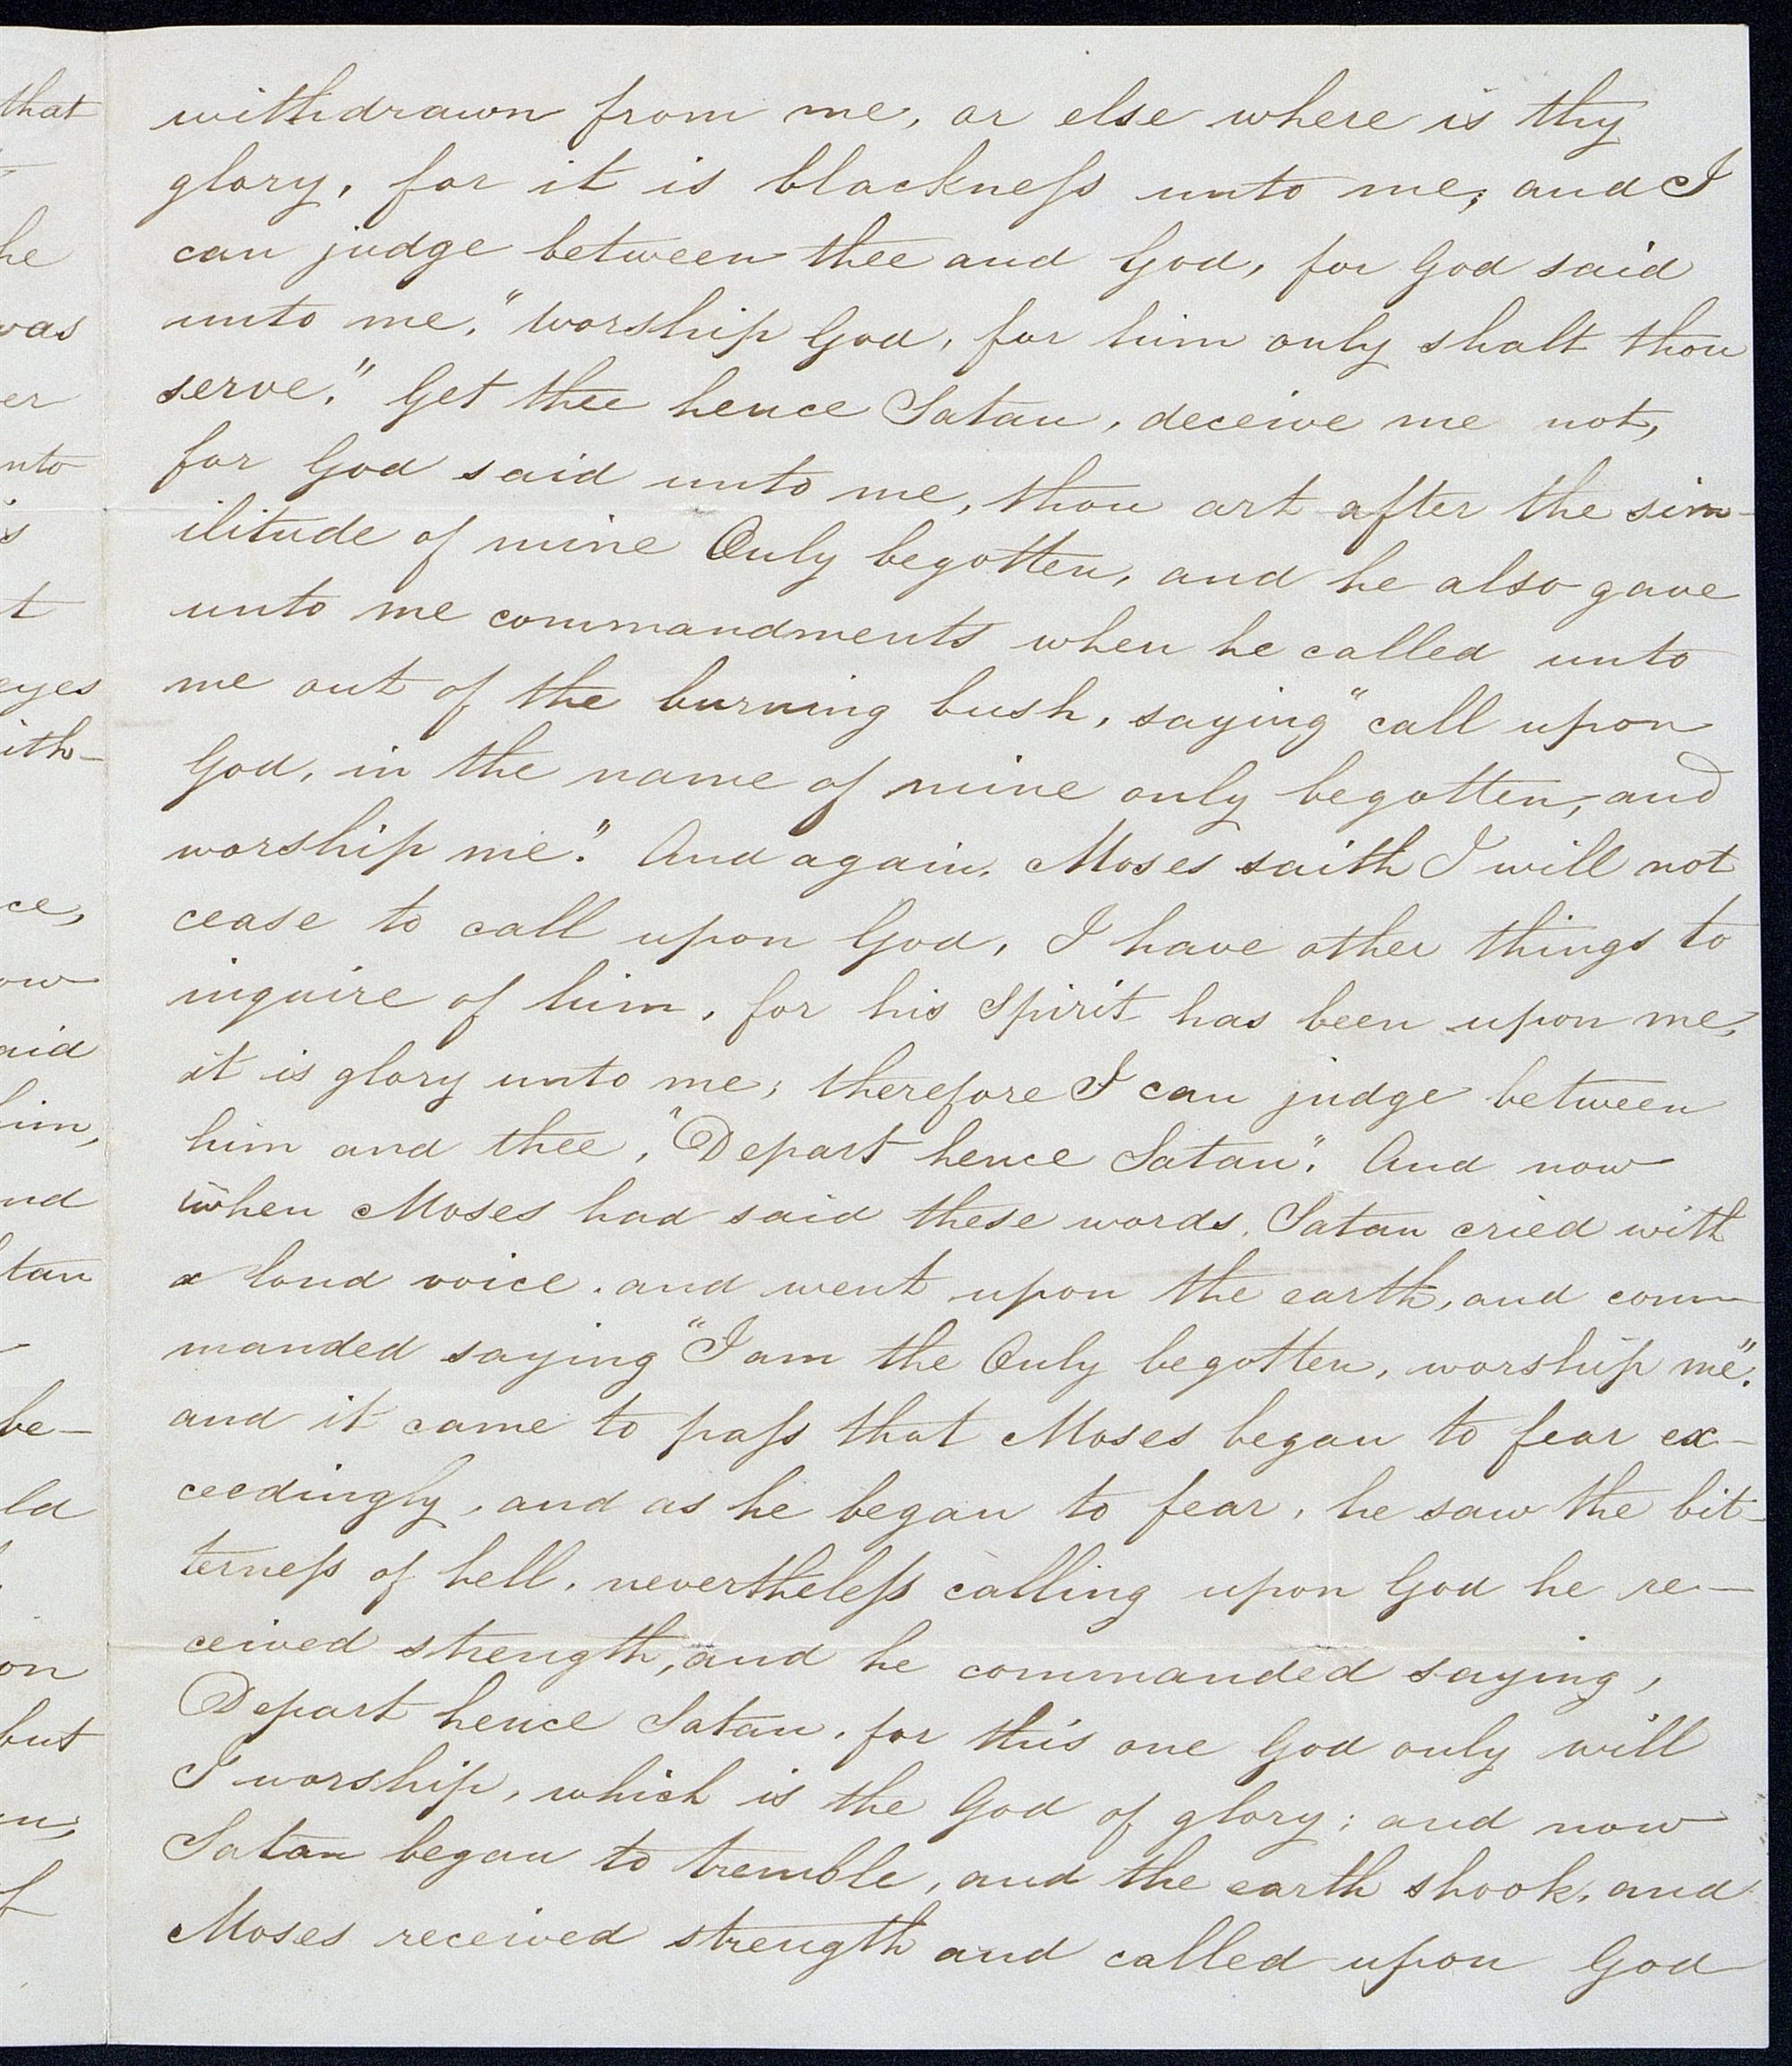 withdrawn from me, or else where is thy
glory, for it is blackneſs unto me; and I
can judge between thee and God, for God said
unto me, "worship God, for him only shalt thou
serve." Get thee hence Satan, deceive me not,
for God said unto me, thou art after the sim-
ilitude of mine Only begotten, and he also gave
unto me commandments when he called unto
me out of the burning bush, saying "call upon
God, in the name of mine only begotten, and
worship me." And again, Moses saith I will not
cease to call upon God, I have other things to
inquire of him, for his Spirit has been upon me,
it is glory unto me; therefore I can judge between
him and thee, "Depart hence Satan". And now
when Moses had said these words, Satan cried with
a loud voice. and went upon the earth, and com-
manded saying "I am the Only begotten, worship me".
and it came to paſs that Moses began to fear ex-
ceedingly, and as he began to fear, he saw the bit-
terneſs of hell. nevertheleſs calling upon God he re-
ceived strength, and he commanded saying,
Depart hence Satan, for this one God only will
I worship, which is the God of glory; and now
Satan began to tremble, and the earth shook, and
Moses received strength and called upon God